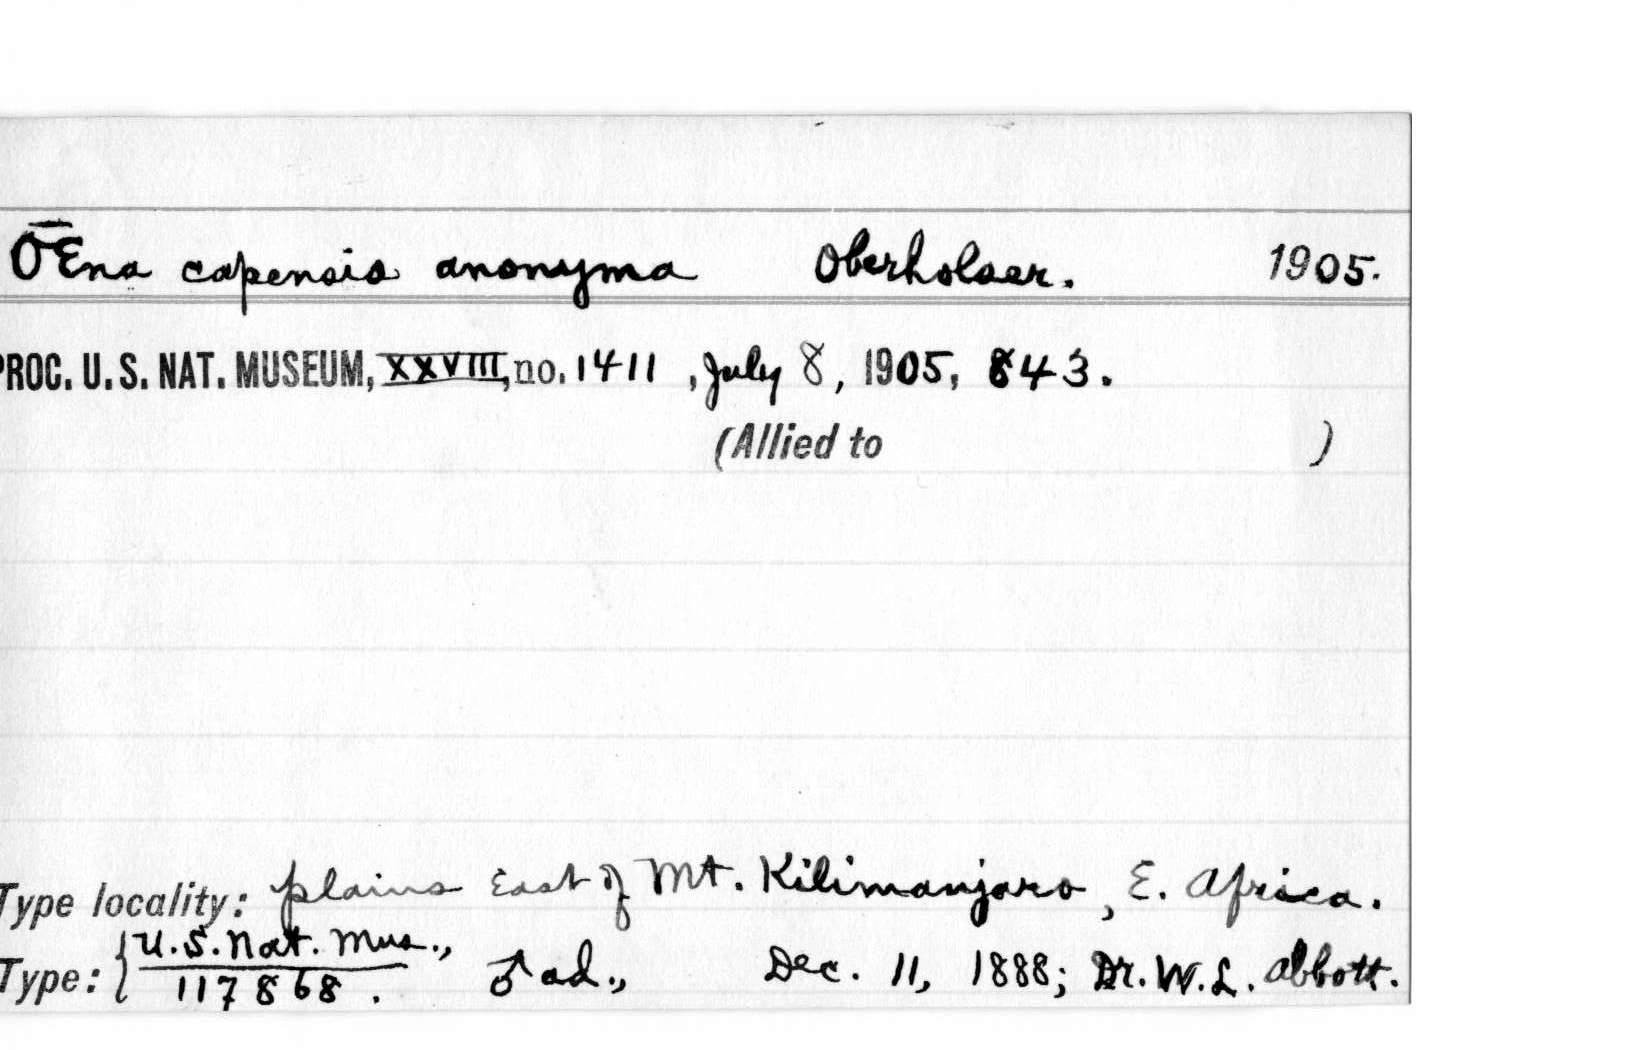 O̅Ena capensis anonyma Oberholser. 1905.
PROC. U.S. NAT. MUSEUM, XXVIII, no. 1411, July 8, 1905, 843.
(Allied to )
Type locality: plains East of Mt. Kilimanjaro, E. Africa.
Type: { U.S. Nat. Mus., ♂ ad., Dec. 11, 1888; Dr. W. L. Abbott.
117868.